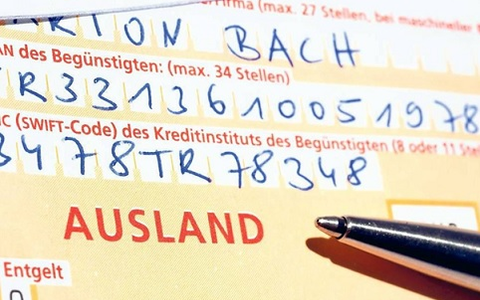 irma (max. 27 Stellen, bei maschineller
RTON BACH
AN des Begünstigten: (max. 34 Stellen)
R3313610051978
IC (SWIFT-Code) des Kreditinstituts des Begünstigten (8 oder 11 Stel
3478TR78348
AUSLAND
Entgelt